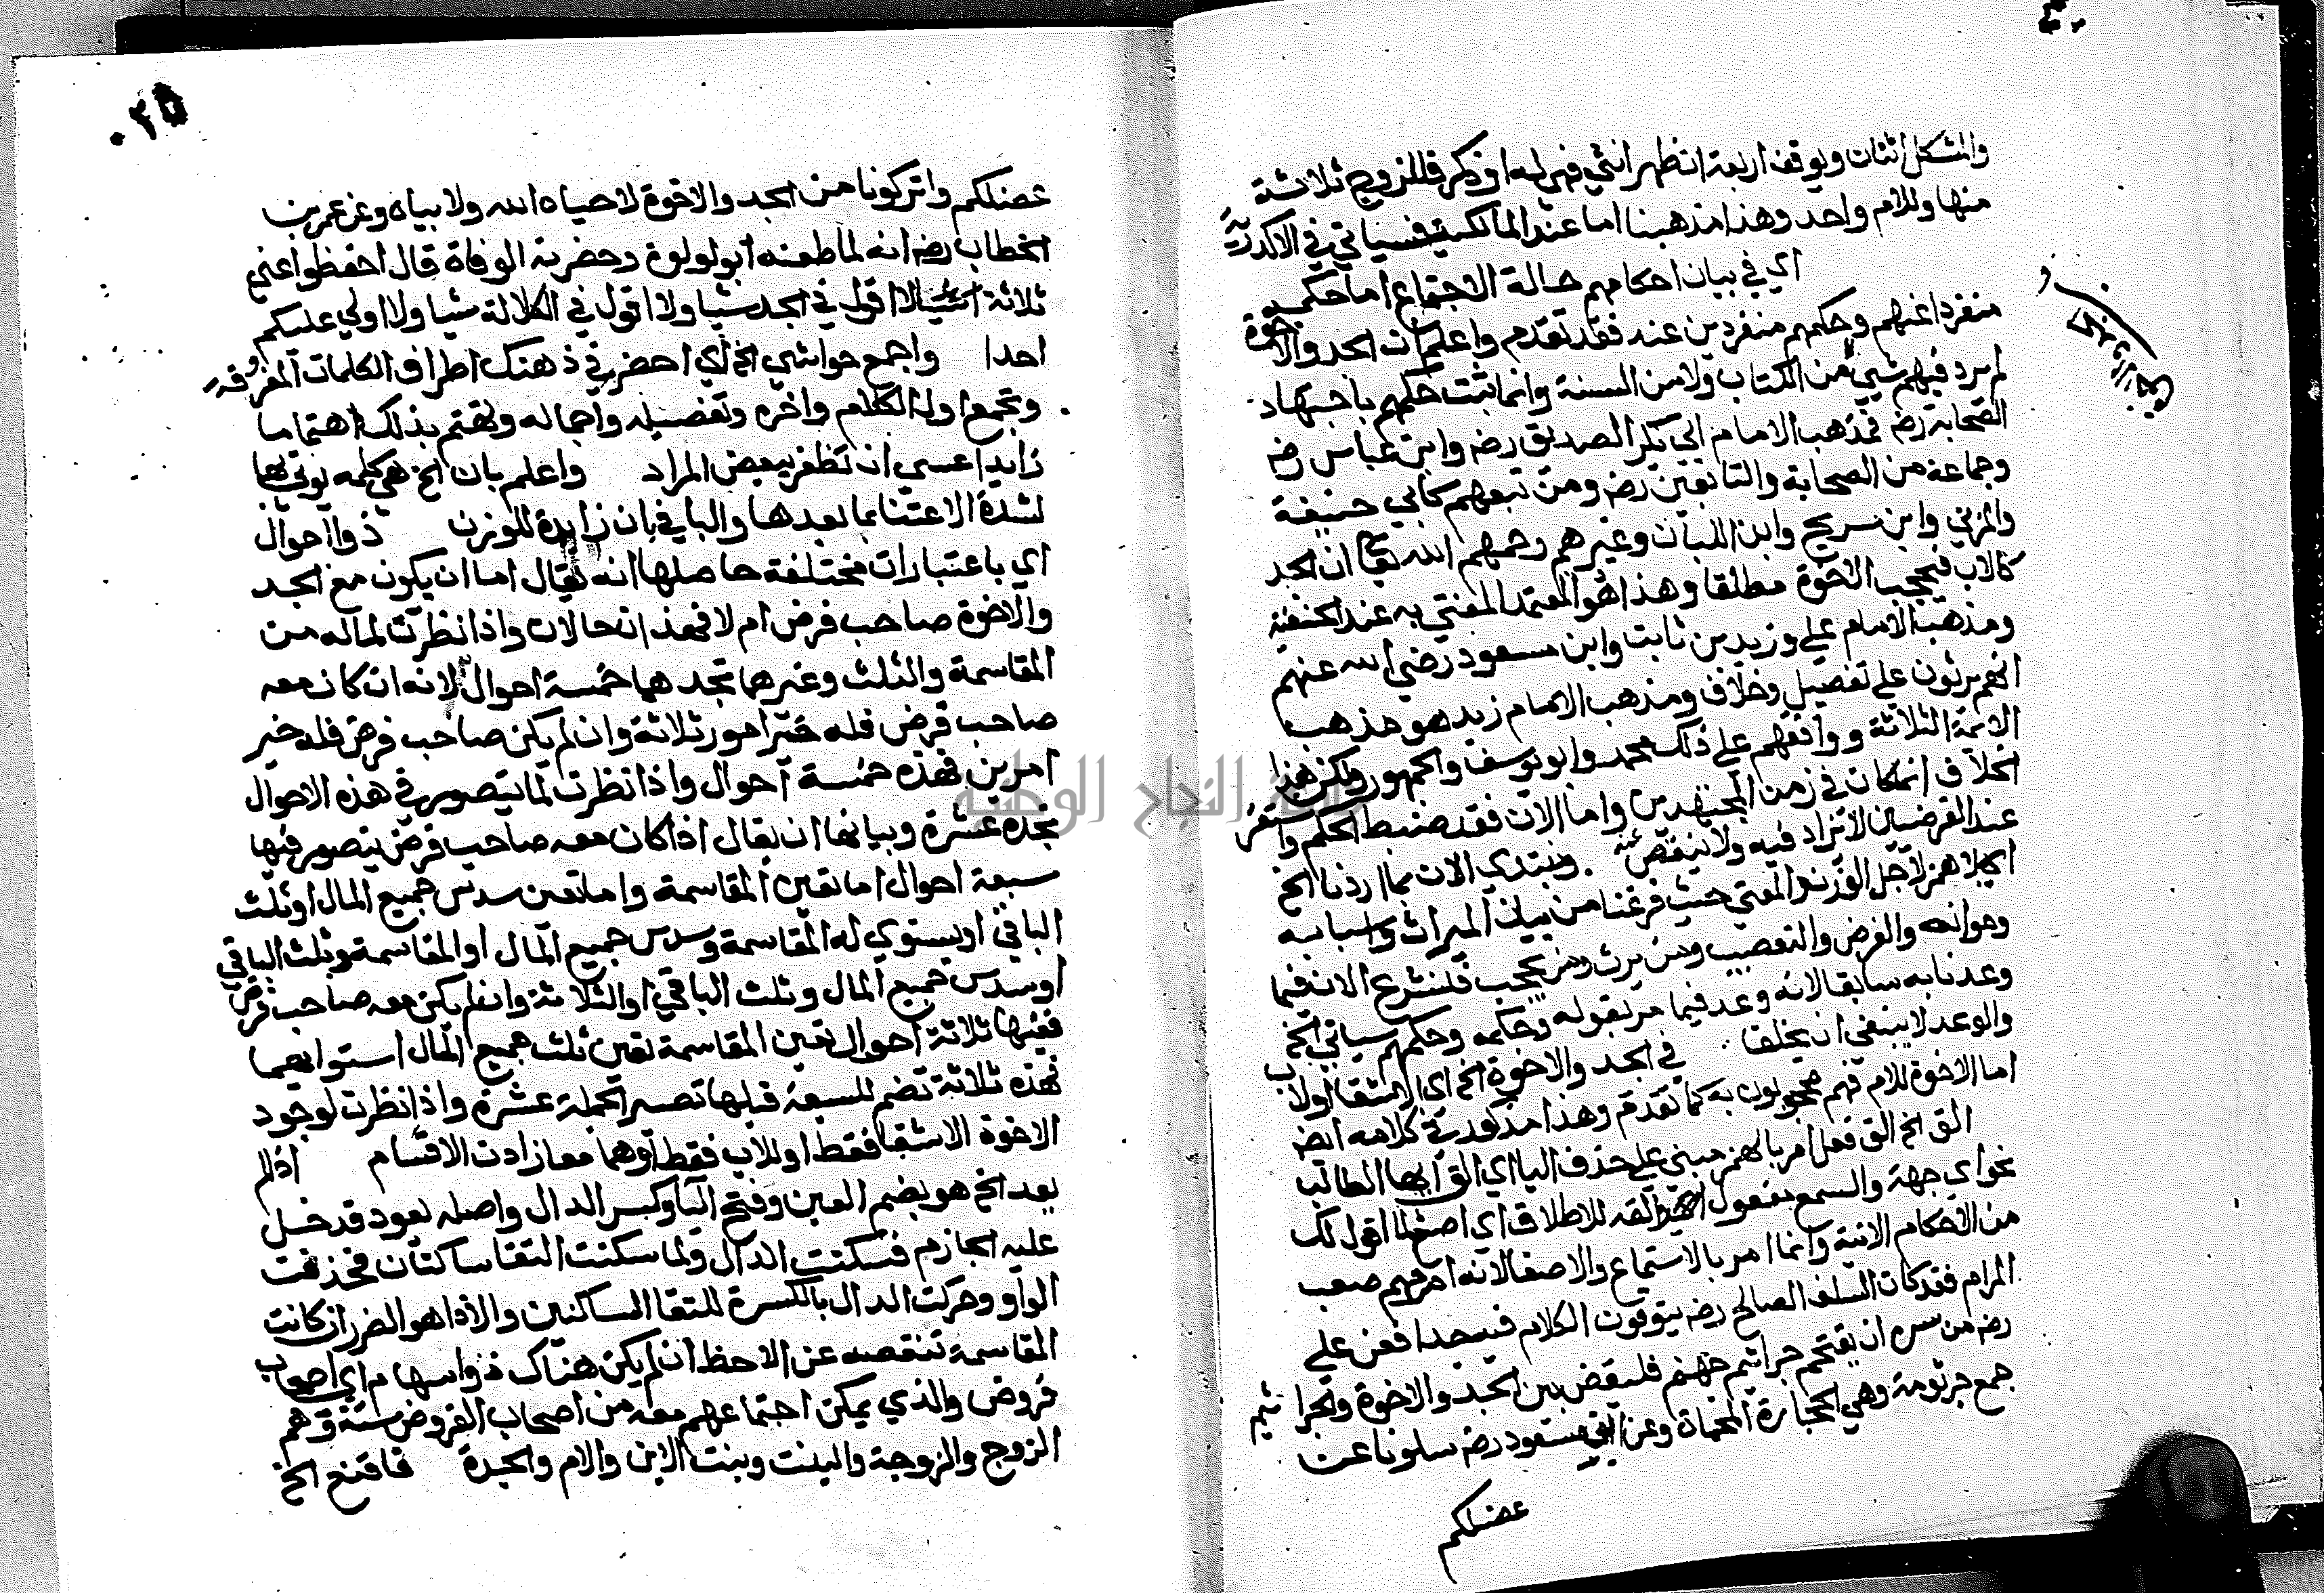 والمشكل اثنان ويوقف اربعة ان ظهر انثي فهي له او ذكر فللزوج ثلاثة
منها وللام واحد وهذا مذهبنا اما عند المالكية فسياتي في الاكدرية
اي في بيان احكامهم حالة الاجتماع اما حكمه
منفردا عنهم وحكمهم منفردين عنه فقد تقدم واعلم ان الجد والاخوة
لم يرد فيهم شي من الكتاب ولا من السنة وانما ثبت حكمهم باجتهاد
الصحابة رضه فمذهب الامام ابي بكر الصديق رضه وابن عباس رضه
وجماعة من الصحابة والتابعين رضه ومن تبعهم كابي حنيفة
والمزني وابن سريج وابن اللبان وغيرهم رحمهم الله تعا ان الجد
كالاب فيحجب الاخوة مطلقا وهذا هو المعتمد المفتي به عند الحنفية
ومذهب الامام علي وزيد بن ثابت وابن مسعود رضي الله عنهم
انهم يرثون علي تفصيل وخلاف ومذهب الامام زيد هو مذهب
الائمة الثلاثة ووافقهم علي ذلك محمد وابو يوسف والجمهور ولكن هذا
الخلاف انما كان في زمن المجتهدين واما الان فقد ضبط الحكم واستقر
عند الفرضيين لا تزاد فيه ولا ينقص منه ونبتدي الان بما اردنا الخ
اي بلا همز لاجل الوزن والمعني حيث فرغنا من بيان الميراث واسبابه
وموانعه والفرض والتعصيب ومن يرث ومن يحجب فلنشرع الان فيما
وعدنا به سابقا لانه وعد فيما مر بقوله وحكمه وحكمهم سياتي الخ
والوعد لا ينبغي ان يخلف في الجد والاخوة الخ اي الاشقا او لاب
اما الاخوة للام فهم محجوبون به كما تقدم وهذا مذكور في كلامه ايض
الق الخ الق فعل امر بالهمز مبني علي حذف اليا اي الق ايها الطالب
نحو اي جهة والسمع مفعول الفه للاطلاق اي اصغ لما اقول لك
من الاحكام الاتية وانما امر بالاستماع والاصغا لانه امر مهم صعب
المرام فقد كان السلف الصالح رضه يتوقون الكلام فيه جدا فعن علي
رضه من سره ان يقتحم جراثيم جهنم فليقض بين الجد والاخوة والجراثيم
جمع جرثومة وهي الحجارة المحماة وعن ابن مسعود رضه سلونا عن
عضلكم
عضلكم واتركونا من الجد والاخوة لا حياه الله ولا بياه وعن عمر بن
الخطاب رضه انه لما طعنه ابو لولوة وحضرته الوفاة قال احفظوا عني
ثلاثة اشيا لا اقول في الجد شيا ولا اقول في الكلالة شيا ولا اولي عليكم
احدا واجمع حواشي الخ اي احضر في ذهنك اطراف الكلمات المفرقه
وتجمع اول الكلام واخره وتفصيله واجماله وتهتم بذلك اهتماما
زايدا عسي ان تظفر ببعض المراد واعلم بان الخ هي كلمه يوتي بها
لشدة الاعتنا بما بعدها والبا في بان زايدة للوزن ذو احوال
اي باعتبارات مختلفة حاصلها انه يقال اما ان يكون مع الجد
والاخوة صاحب فرض ام لا فهذان حالان واذا نظرت لما له من
المقاسمة والثلث وغيرها تجدهما خمسة احوال لانه ان كان معه
صاحب فرض فله خير امور ثلاثة وان لم يكن صاحب فرض فله خير
امرين فهذه خمسة احوال واذا نظرت لما يتصور في هذه الاحوال
تجده عشرة وبيانها ان يقال اذا كان معه صاحب فرض يتصور فيها
سبعة احوال اما تعين المقاسمة واما تعين سدس جميع المال او ثلث
الباقي او يستوي له المقاسمة وسدس جميع المال او المقاسمة وثلث الباقي
او سدس جميع المال وثلث الباقي او الثلاثة وان لم يكن معه صاحب فرض
ففيها ثلاثة احوال تعين المقاسمة تعين ثلث جميع المال استوايهما
فهذه ثلاثة تضم للسبعة قبلها تصير الجملة عشرة واذا نظرت لوجود
الاخوة الاشقا فقط او للاب فقط او هما معا زادت الاقسام اذ لم
يعد الخ هو بضم العين وفتح اليا وكسر الدال واصله يعود قد خل
عليه الجازم فسكنت الدال ولما سكنت التقا ساكنان فحذفت
الواو وحركت الدال بالكسرة للتقا الساكنين والاذا هو الضرر ان كانت
المقاسمة تنقصه عن الاحظ ان لم يكن هناك ذو اسهام اي اصحاب
فروض والذي يمكن اجتماعهم معه من اصحاب الفروض ستة وهم
الزوج والزوجة والبنت وبنت الابن والام والجدة فاقنع الخ